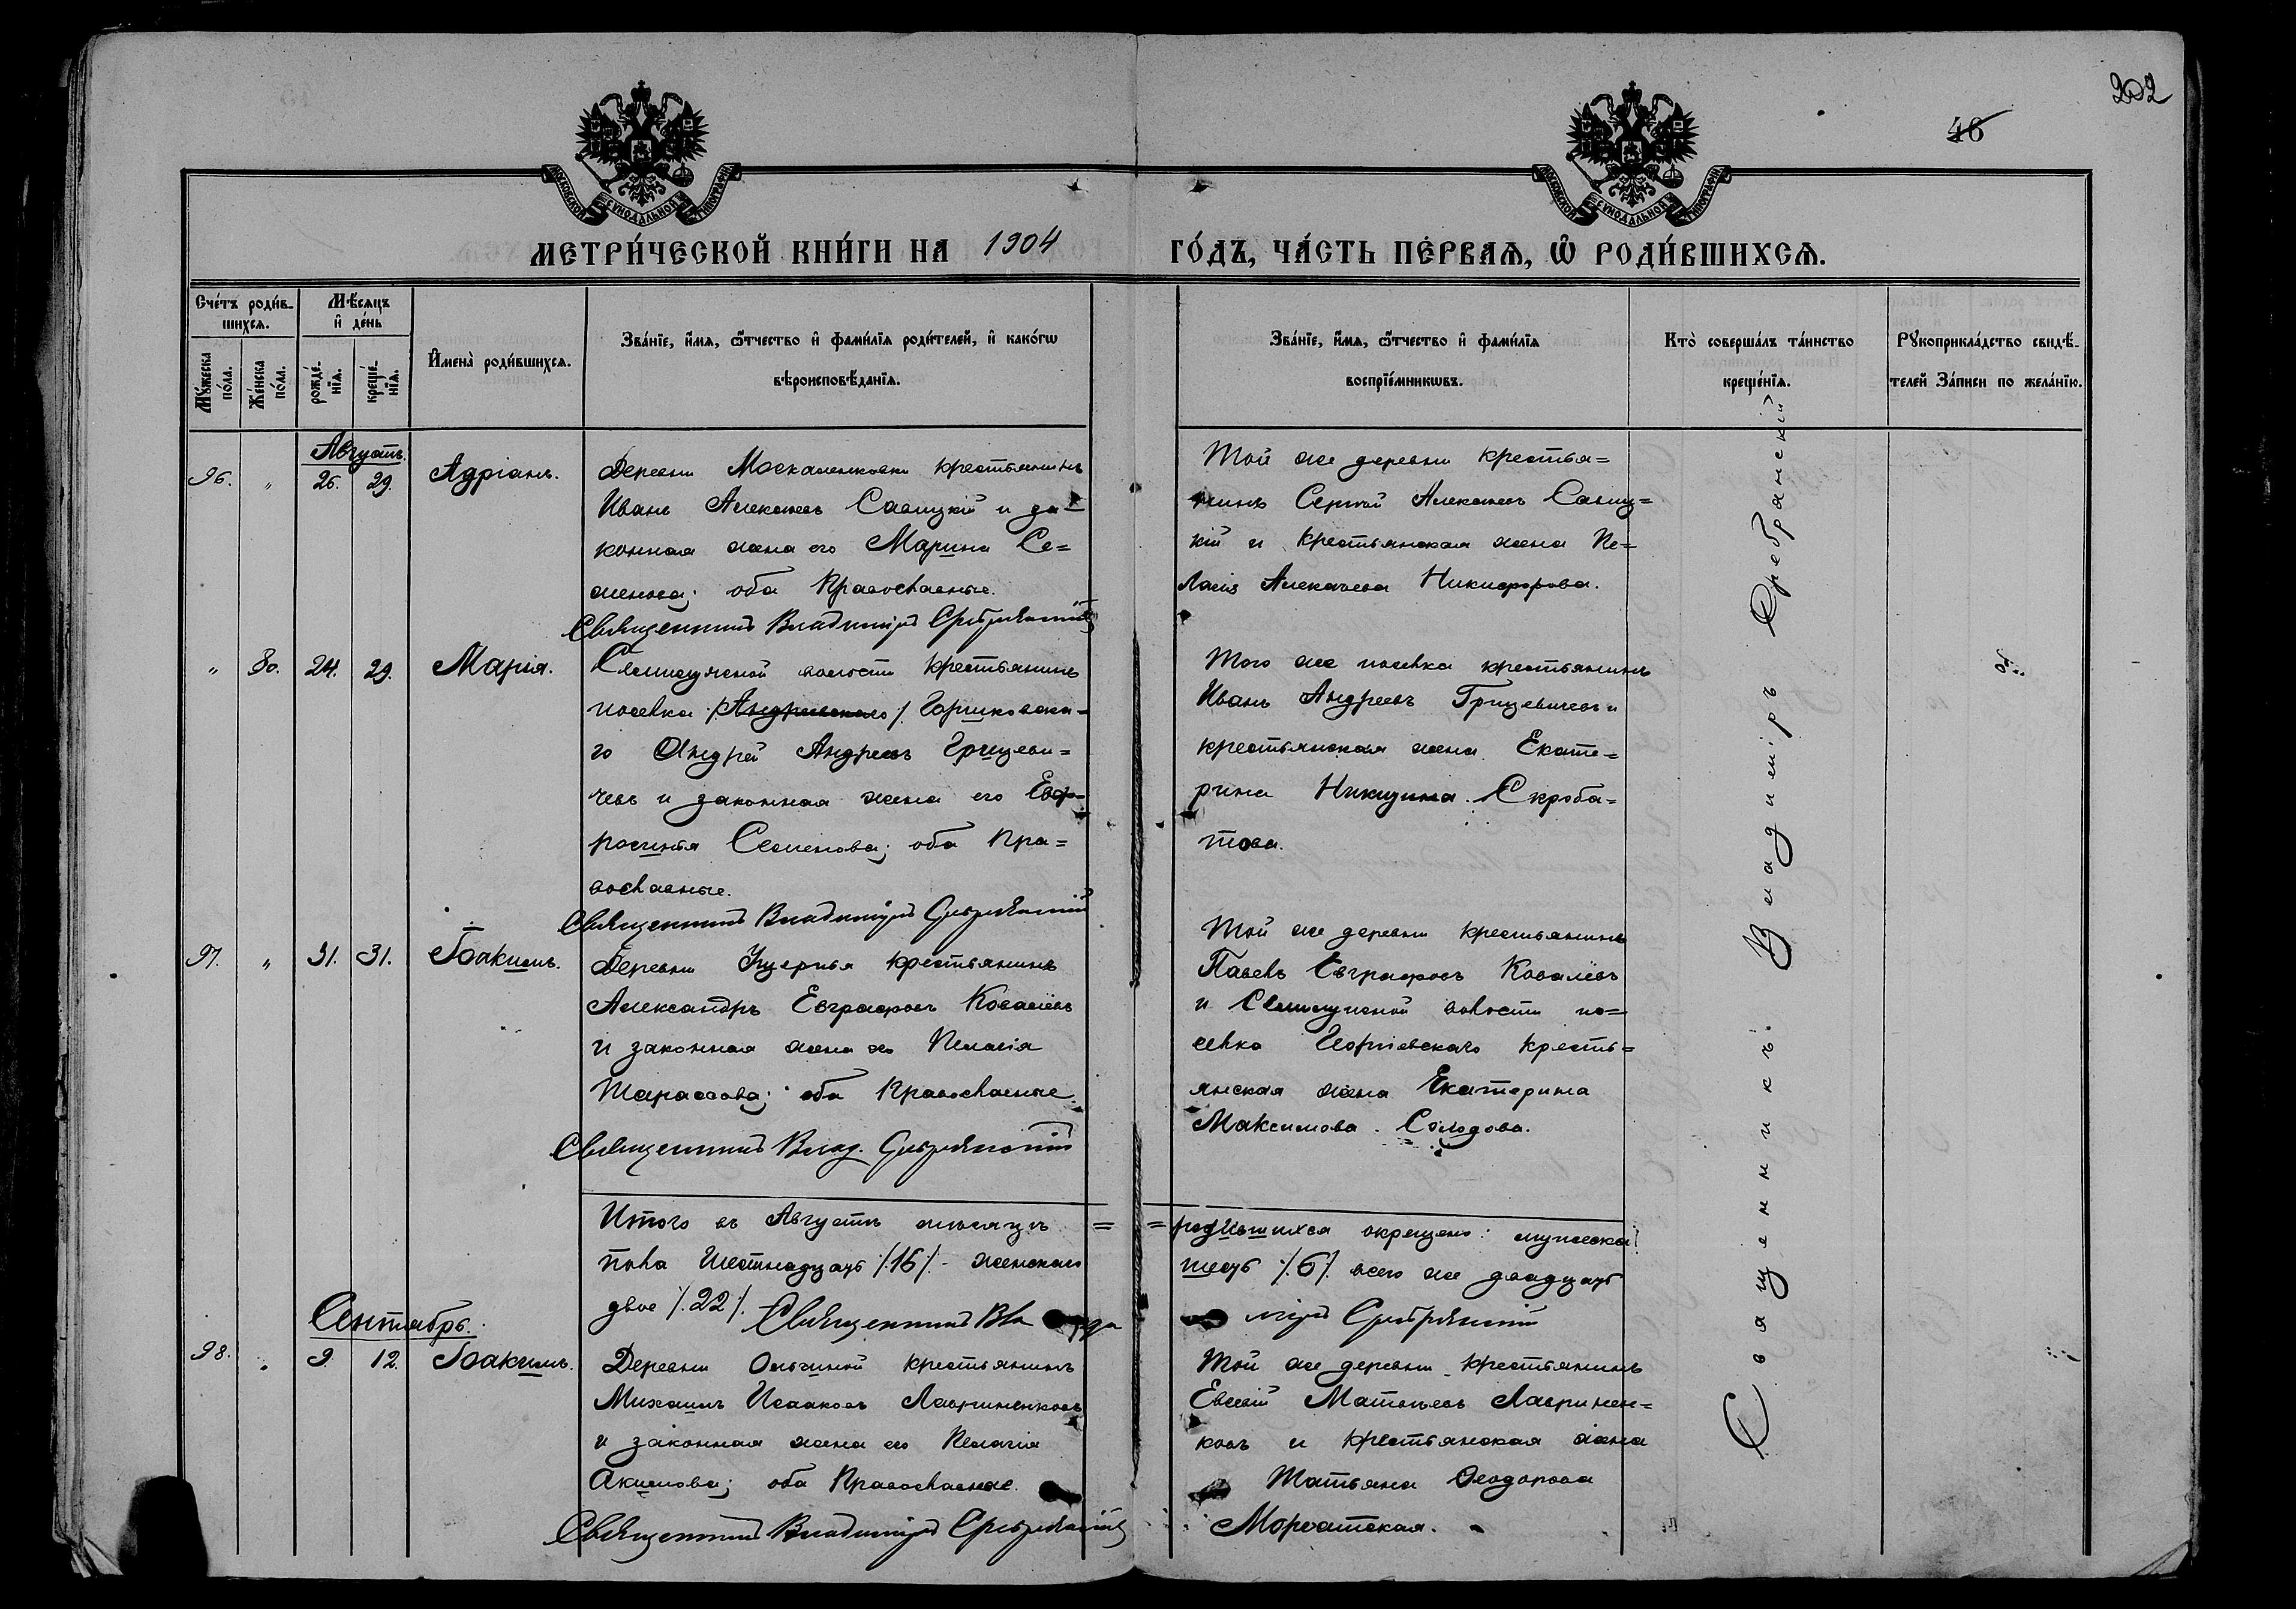 202
46
МОСКОВСКОЙ СѴНОДАЛЬНОЙ ТИПОГРАФІИ
МОСКОВСКОЙ СѴНОДАЛЬНОЙ ТИПОГРАФІИ
МЕТРИ́ЧЕСКОЙ КНИ́ГИ НА 1904 ГО́ДЪ, ЧА́СТЬ ПЕ́РВАѦ, Ѡ҆ РОДИ́ВШИХСѦ.
Сче́тъ роди́в-
шихсѧ.
Мѣ́сѧцъ
и҆ де́нь
Мꙋ́жеска
по́ла.
Же́нска
по́ла.
рожде́-
нїѧ.
креще́-
нїѧ.
И҆мена̀ роди́вшихсѧ.
Зва́нїе, и҆́мѧ, ѻ҆́тчество и҆ фами́лїѧ роди́телей, и҆ како́гѡ
вѣроисповѣ́данїѧ.
Зва́нїе, и҆́мѧ, ѻ҆́тчество и҆ фами́лїѧ
воспрїе́мникѡвъ.
Кто̀ соверша́лъ та́инство
креще́нїѧ.
Рꙋкоприкла́дство свидѣ́-
телей за́писи по жела́нїю.
Августъ.
96. " 26. 29. Адріанъ.
Деревни Москаленковки крестьянинъ
Иванъ Алексѣевъ Савицкій и за-
конная жена его Марина Се-
менова; оба Православные.
Священникъ Владиміръ Сребрянскій
Той же деревни крестья=
нинъ Сергѣй Алексѣевъ Савиц=
кій и крестьянская жена Пе-
лагія Алексѣева Никифорова.
" 30. 24. 29. Марія.
волости крестьянинъ
поселка /Андреевскаго/ Горшковска-
го Андрей Андреевъ Грицеви=
чевъ и законная жена его Евф-
росинья Семенова; оба Пра=
вославные.
Священникъ Владиміръ Сребрянскій
Того же поселка крестьянинъ
Иванъ Андреевъ Грицевичевъ и
крестьянская жена Екате=
рина Никицина Скроба=
това.
97. " 31. 31. Іоакимъ.
Деревни Ущерпья крестьянинъ
Александръ Евграфовъ Ковалёвъ
и законная жена его Пелагія
Тарасова; оба Православные.
Священникъ Влад. Сребрянскій
Той же деревни крестьянинъ
Павелъ Евграфовъ Ковалёвъ
и волости по=
селка Георгіевскаго кресть=
янская жена Екатерина
Максимова Солодова.
Итого въ Августѣ мѣсяцѣ = = родившихся окрещено: мужеска
пола шестнадцать /.16/. - женскаго шесть /.6/. всего же двадцать
двое /.22/. Священникъ Влади міръ Сребрянскій
Сентябрь.
98. " 9. 12. Іоакимъ.
Деревни крестьянинъ
Михаилъ Исааковъ Лавриненковъ
и законная жена его Пелагія
Акимова; оба Православные.
Священникъ Владиміръ Сребрянскій
Той же деревни крестьянинъ
Евсевій Матвѣевъ Лавринен=
ковъ и крестьянская жена
Татьяна Ѳеодорова
Священникъ Владиміръ Сребрянскій